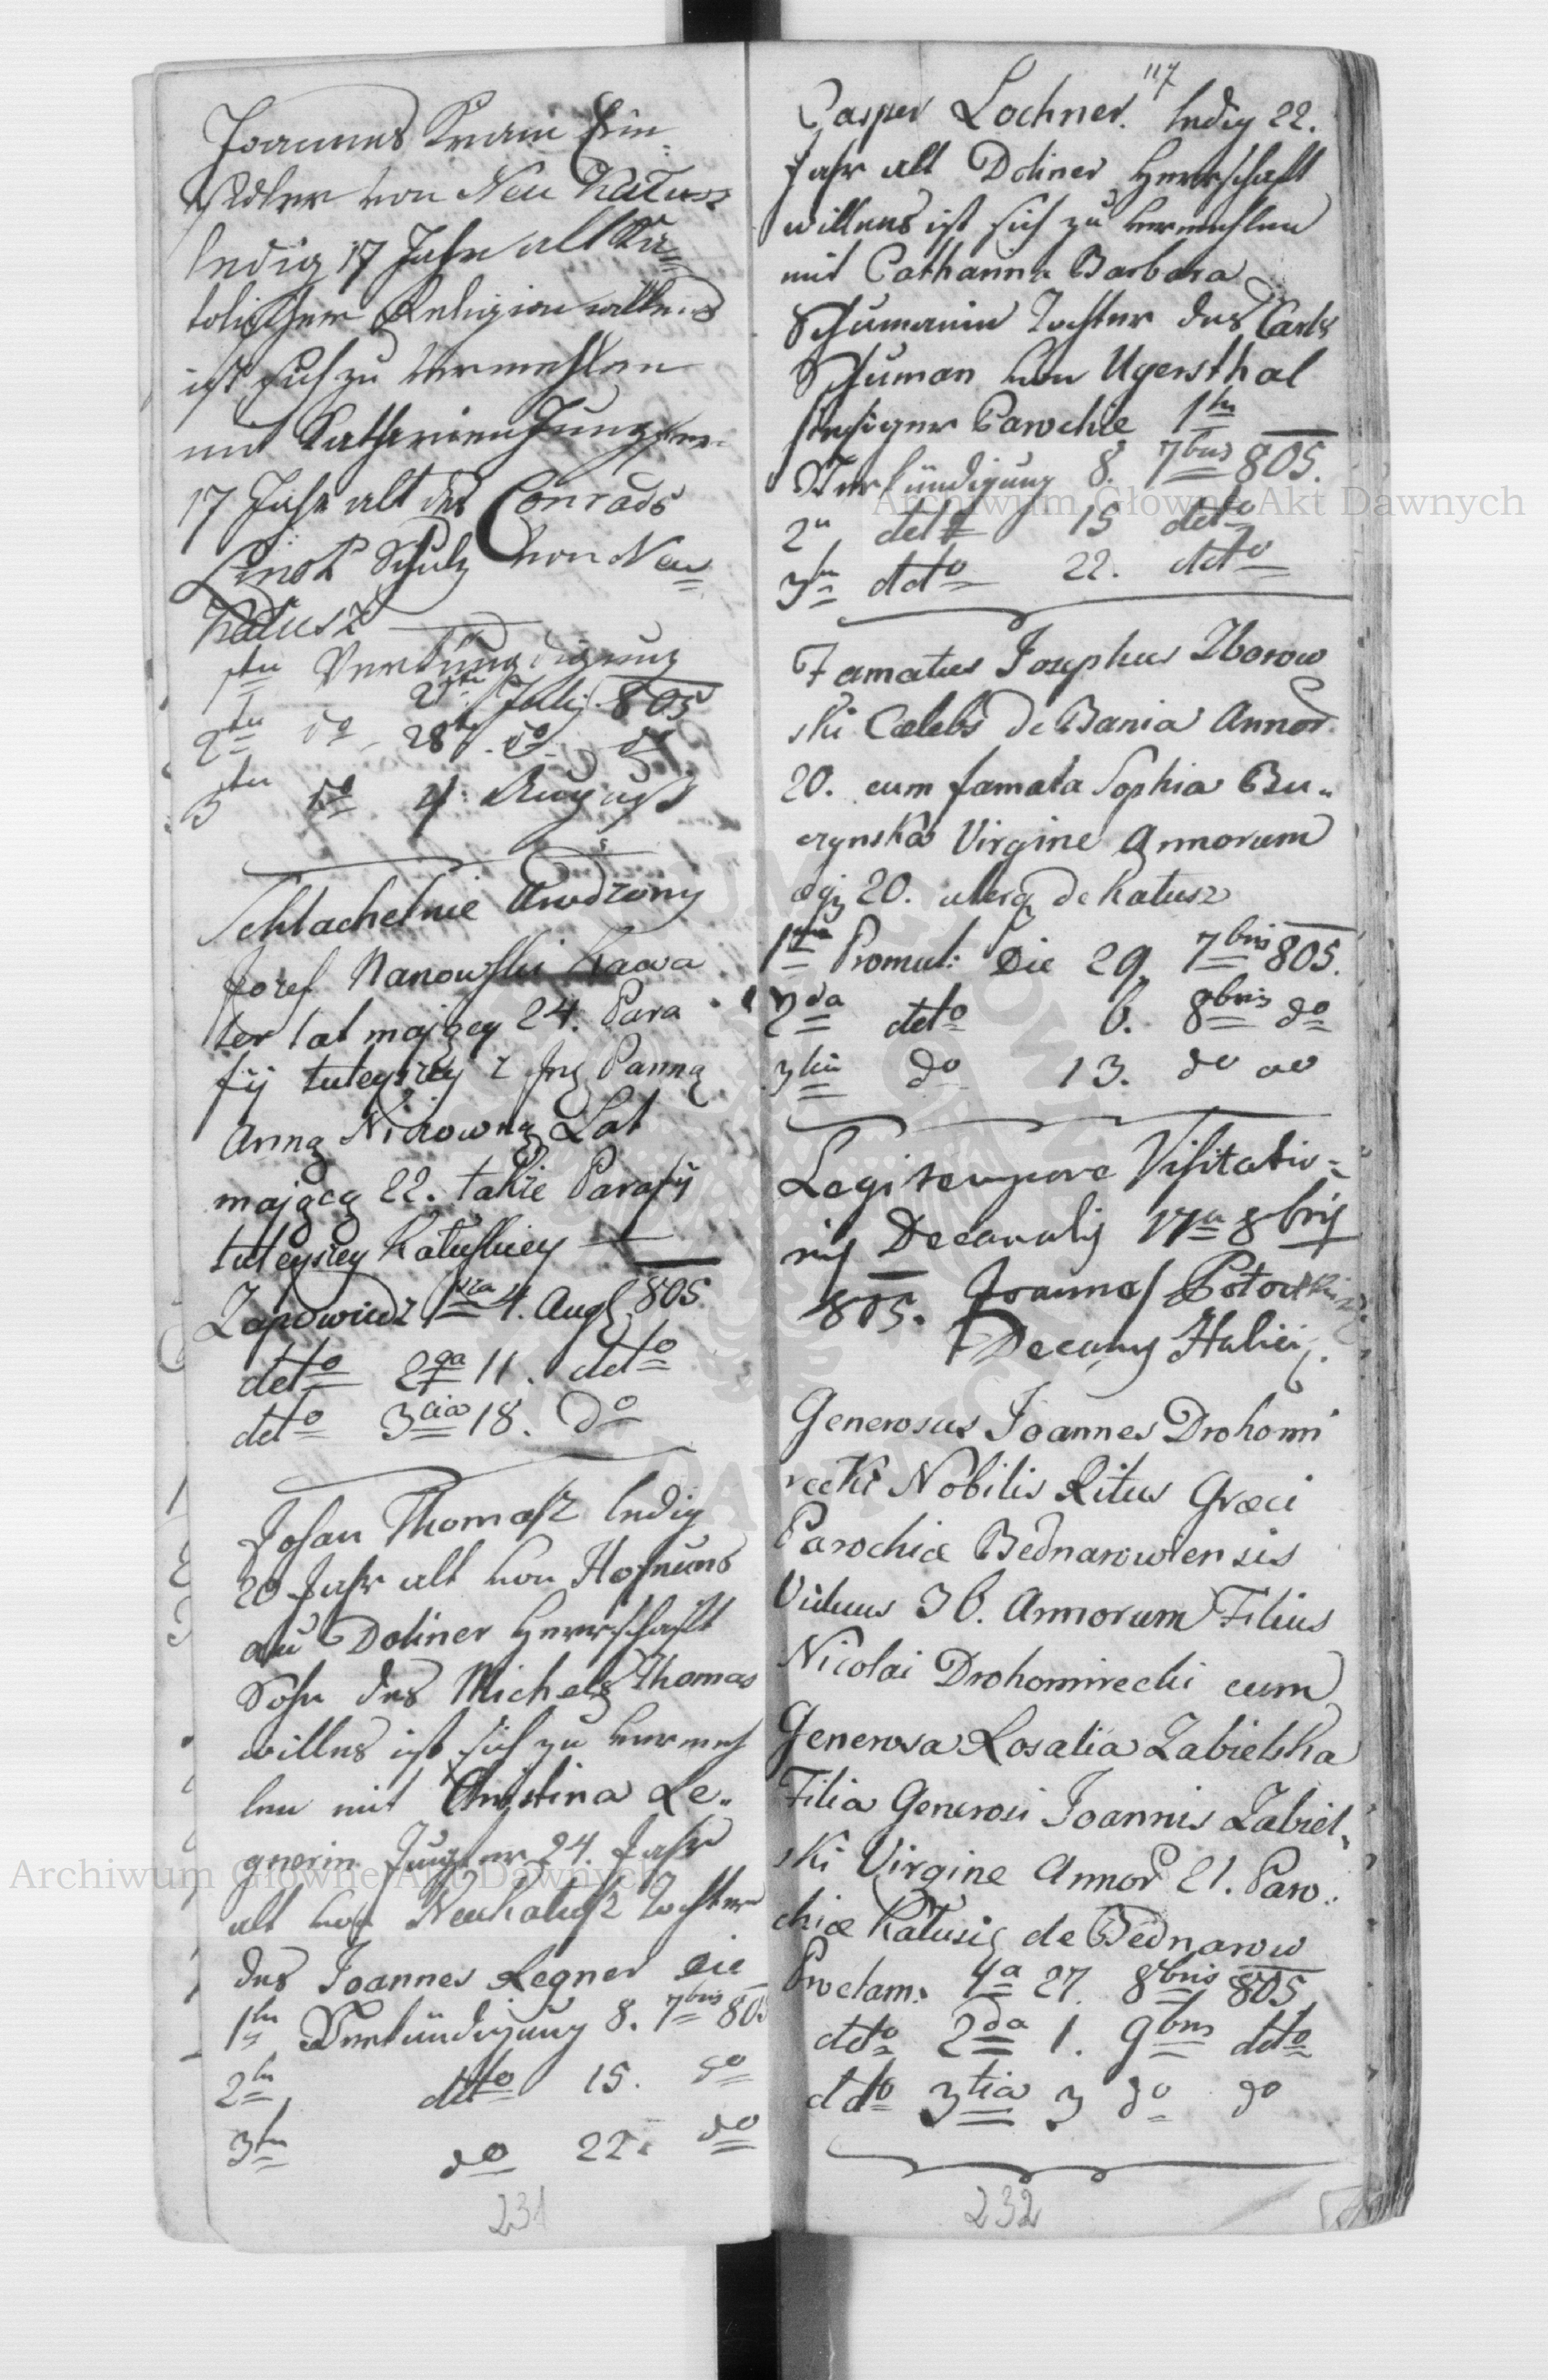 Joannes Kram Ein=
sidler von Neu Kałusz
ledig 17 Jahr alt Ka=
tolischer Religion willens
ist sich zu vermehlen
mit Katharina Jungfer
17 Jahr alt des Conrads
Schulz von Neu
Kałusz
1ten Verkündigung
21ten Julij 805
2ten do 28t. do do
3ten do 4 August
Schlachetnie Urodzony
Jozef Nanowski Kawa
ler lat mający 24. Para
fij tuteyszey z Jmć Panną
Anną Lat
mającą 22. także Parafij
tuteyszey Kałuskiey
Zapowiedz 1sza 4. Aug 805.
detto 2ga 11. detto
detto 3cia 18. do
Johan Thomasz ledig
20 Jahr alt von Hofnung
au Doliner Herrschaft
Sohn des Michels Thomas
willns ist sich zu vermeh
len mit Christina Le„
gnerin Jungfer 24. Jahr
alt von Neukałusz Tochter
des Joannes Legner die
1te Verkündigung 8. 7bris 805
2te detto 15. do
3te do 22. do
231
117
Casper Lochner. ledig 22.
Jahr alt Doliner Herrschaft
willens ist sich zu vermehlen
mit Catharina Barbara
Schumanin Tochter des Carls
Schuman von Ugersthal
hiesiger Parochie 1te
Verkündigung 8. 7bris 805.
2te detto 15 detto
3te detto 22. detto
Famatus Josephus Zborow
ski Cælebs de Bania Annor
20. cum famata Sophia Bu„
czynska Virgine Annorum
20. de Kałusz
1ma Promul: Die 29 7bris 805.
2da detto 6. 8bris do
3tia do 13. do do
Legi tempore Visitatio=
nis Decanalis 17a 8bris
805. Joannes Potocki
Decanus Halici.
Generosus Joannes Drohomi
recki Nobilis Ritus Græci
Parochiæ Bednarowiensis
Viduus 36. Annorum Filius
Nicolai Drohomirecki cum
Generosa Rosalia Zabielska
Filia Generosi Joannis Zabiel„
ski Virgine Annor 21. Paro:
chiæ Kałusz de Bednarow
Proclam. 1a 27. 8bris 805
detto 2da 1. 9bris detto
detto 3tia 3 do do
232
Archiwum Główne Akt Dawnych
Archiwum Główne Akt Dawnych